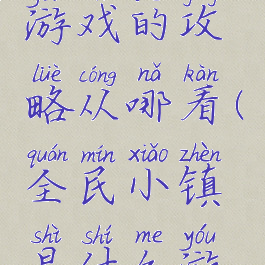 游戏的攻
lüè cóng nǎ kàn
略从哪看(
quán mín xiǎo zhèn
全民小镇
shì shí me yóu
是什么游